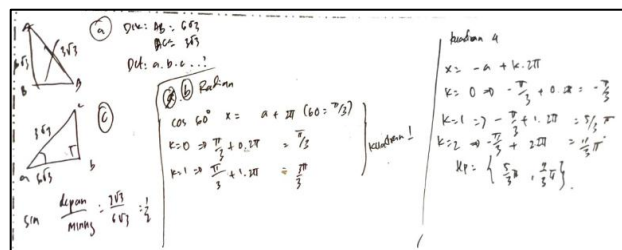 A
6√3
3√3
B
A
ⓐ Dik: AB = 6√3
AC = 3√3
Dit: a.b.c..?
c
ⓒ
3√3
a
6√3
b
sin depan/miring = 3√3/6√3 = 1/2
ⓐ.ⓑ Radian
cos 60° x = a + 2π (60 = π/3)
k=0 => π/3 + 0.2π = π/3
k=1 => π/3 + 1.2π = 7π/3
Kuadran 1
kuadran 4
x = -a + k.2π
k=0 => -π/3 + 0.2π = -π/3
k=1 => -π/3 + 1.2π = 5/3 π
k=2 => -π/3 + 2.2π = 11/3 π
Hp = { 5/3 π, 7/3 π }